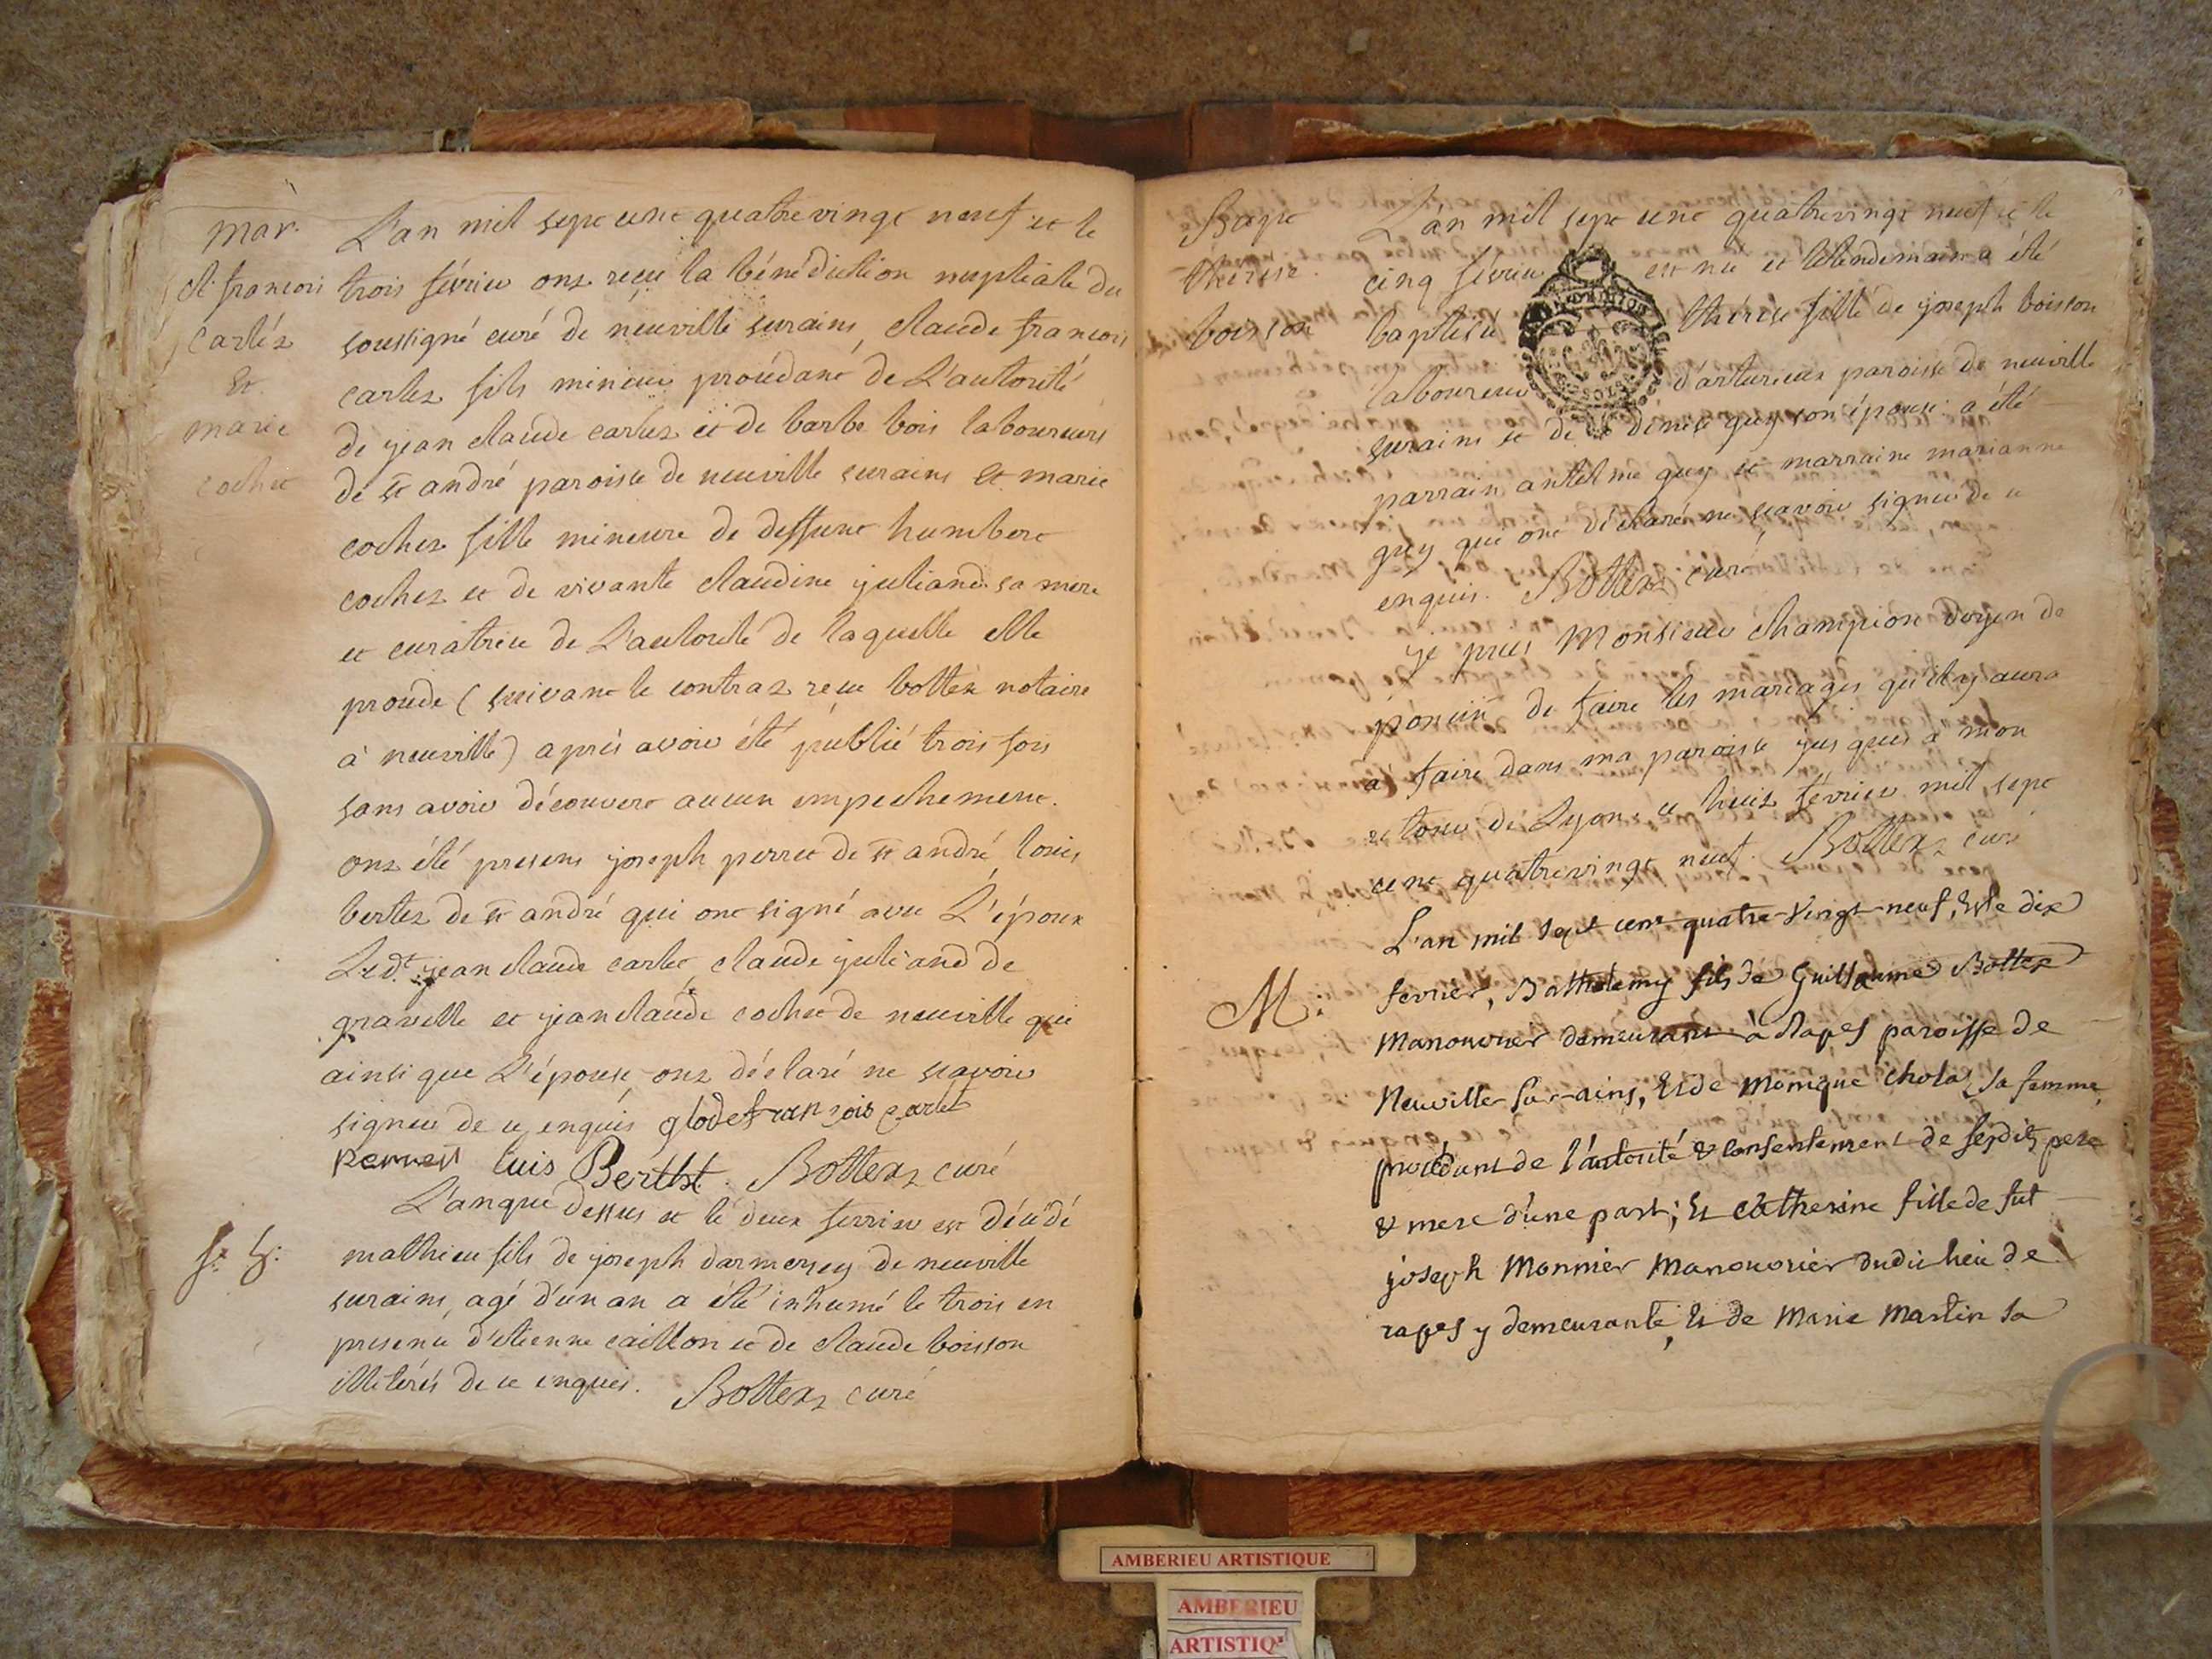 mar.
cl. francois
carlez
Et
marie
cochet
L'an mil sept cent quatre vingt neuf et le
trois février ont reçu la bénédiction nuptiale du
soussigné curé de neuville surains, claude francois
carlez fils mineur procédant de L'autorité
de jean claude carlez et de barbe bois laboureurs
de st andré paroisse de neuville surains et marie
cochez fille mineure de deffunt humbert
cochez et de vivante claudine juliand sa mere
et curatrice de L'autorité de laquelle elle
procede (suivant le contrat reçu bottex notaire
à neuville) après avoir été publié trois fois
sans avoir découvert aucun empechement.
ont été presens joseph perret de st andré, louis
bertez de st andré qui ont signé avec L'époux
Led.t jean claude carlet, claude juliand de
gravelle et jean claude cochet de neuville qui
ainsi que L'épouse ont déclaré ne scavoir
signer de ce enquis glode fran sois carlet
luis Berthet. Bottex curé
L'an que dessus et le deux fevrier est décédé
mathieu fils de joseph darmesey de neuville
surains, agé d'un an a été inhumé le trois en
presence d'etienne caillon et de claude boisson
illiterés de ce enquis. Bottex curé
Bapt
thérese
boisson
L'an mil sept cent quatrevingt neuf et le
cinq février est née et le lendemain a été
baptisée thérese fille de joseph boisson
laboureur d'arturieux paroisse de neuville
surains et de denise guy son épouse. a été
parrain antelme guy et marraine marianne
guy qui ont déclaré ne scavoir signer de ce
enquis. Bottex curé
je prie Monsieur champion doyen de
poncin de faire les mariages qu'il y aura
à faire dans ma paroisse jusques à mon
retour de Lyon ce huit février mil sept
cent quatrevingt neuf. Bottex curé
M:
L'an mil sept cent quatre-vingt-neuf, Et le dix
fevrier, Bathelemy fils de Guillaume Bottex
Manouvrier demeurant à Rapes paroisse de
Neuville-sur-ains, Et de Monique Chola sa femme,
procédant de l'autorité & consentement de sesdits pere
& mere d'une part; Et Catherine fille de fut
joseph Monnier Manouvrier dudit lieu de
rapes y demeurante, Et de Marie Martin sa
AMBERIEU ARTISTIQUE
AMBERIEU
ARTISTIQ